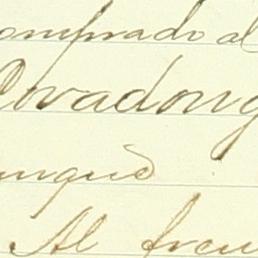 omprado al
Ovadong
unque
Al fren